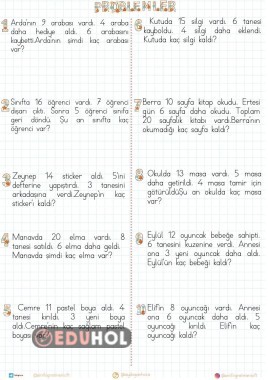 PROBLEMLER
1 Arda'nın 9 arabası vardı. 4 araba
daha hediye aldı. 6 arabasını
kaybetti.Arda'nın şimdi kaç arabası
var?
2 Sınıfta 16 öğrenci vardı. 7 öğrenci
dışarı çıktı. Sonra 5 öğrenci sınıfa
geri döndü. Şu an sınıfta kaç
öğrenci var?
3 Zeynep 14 sticker aldı. 5'ini
defterine yapıştırdı. 3 tanesini
arkadaşına verdi.Zeynep'in kaç
sticker'ı kaldı?
4 Manavda 20 elma vardı. 8
tanesi satıldı. 6 elma daha geldi.
Manavda şimdi kaç elma var?
5 Cemre 11 pastel boya aldı. 4
tanesi kırıldı. 3 yeni boya
aldı.Cemre'nin kaç sağlam pastel
boyası
6 Kutuda 15 silgi vardı. 6 tanesi
kayboldu. 4 silgi daha eklendi.
Kutuda kaç silgi kaldı?
7 Berra 10 sayfa kitap okudu. Ertesi
gün 6 sayfa daha okudu. Toplam
20 sayfalık kitabı vardı.Berra'nın
okumadığı kaç sayfa kaldı?
8 Okulda 13 masa vardı. 5 masa
daha getirildi. 4 masa tamir için
götürüldüğü an okulda kaç masa
var?
9 Eylül 12 oyuncak bebeğe sahipti.
6 tanesini kuzenine verdi. Annesi
ona 3 yeni oyuncak daha aldı.
Eylül'ün kaç bebeği kaldı?
10 Elif'in 8 oyuncağı vardı. Annesi
ona 5 oyuncak daha aldı. 6
oyuncağı kırıldı. Elif'in kaç
oyuncağı kaldı?
EDUHOL